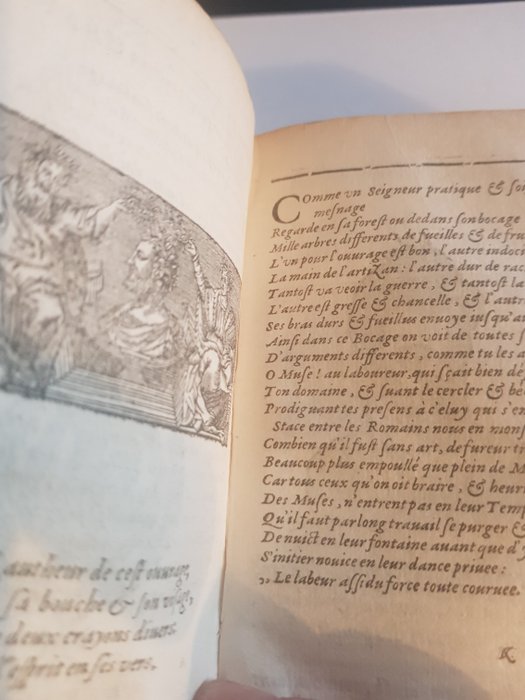 autheur de cest ouvrage,
sa bouche & son visage,
deux crayons divers.
l'esprit en ses vers.
Comme vn Seigneur pratique &
mesnage
Regarde en sa forest ou dedans son bocage
Mille arbres differents de fueilles & de
L'vn pour l'ouurage est bon, l'autre
La main de l'artizan: l'autre dur de
Tantost va veoir la guerre, & tantost
L'autre est gresse & chancelle, &
Ses bras durs & fueillus enuoye iusqu'
Ainsi dans ce Bocage on voit de toutes
D'arguments differents, comme tu les
O Muse! au laboureur, qui sçait bien
Ton domaine, & suant le cercler &
Prodiguant tes presens à c'eluy qui
Stace entre les Romains nous en
Combien qu'il fust sans art, de fureur
Beaucoup plus empoullé que plein de
Car tous ceux qu'on oit braire, &
Des Muses, n'entrent pas en leur
Qu'il faut par long trauail se purger &
De nuict en leur fontaine auant que
S'initier nouice en leur dance priuee:
,, Le labeur assidu force toute couruee.
K